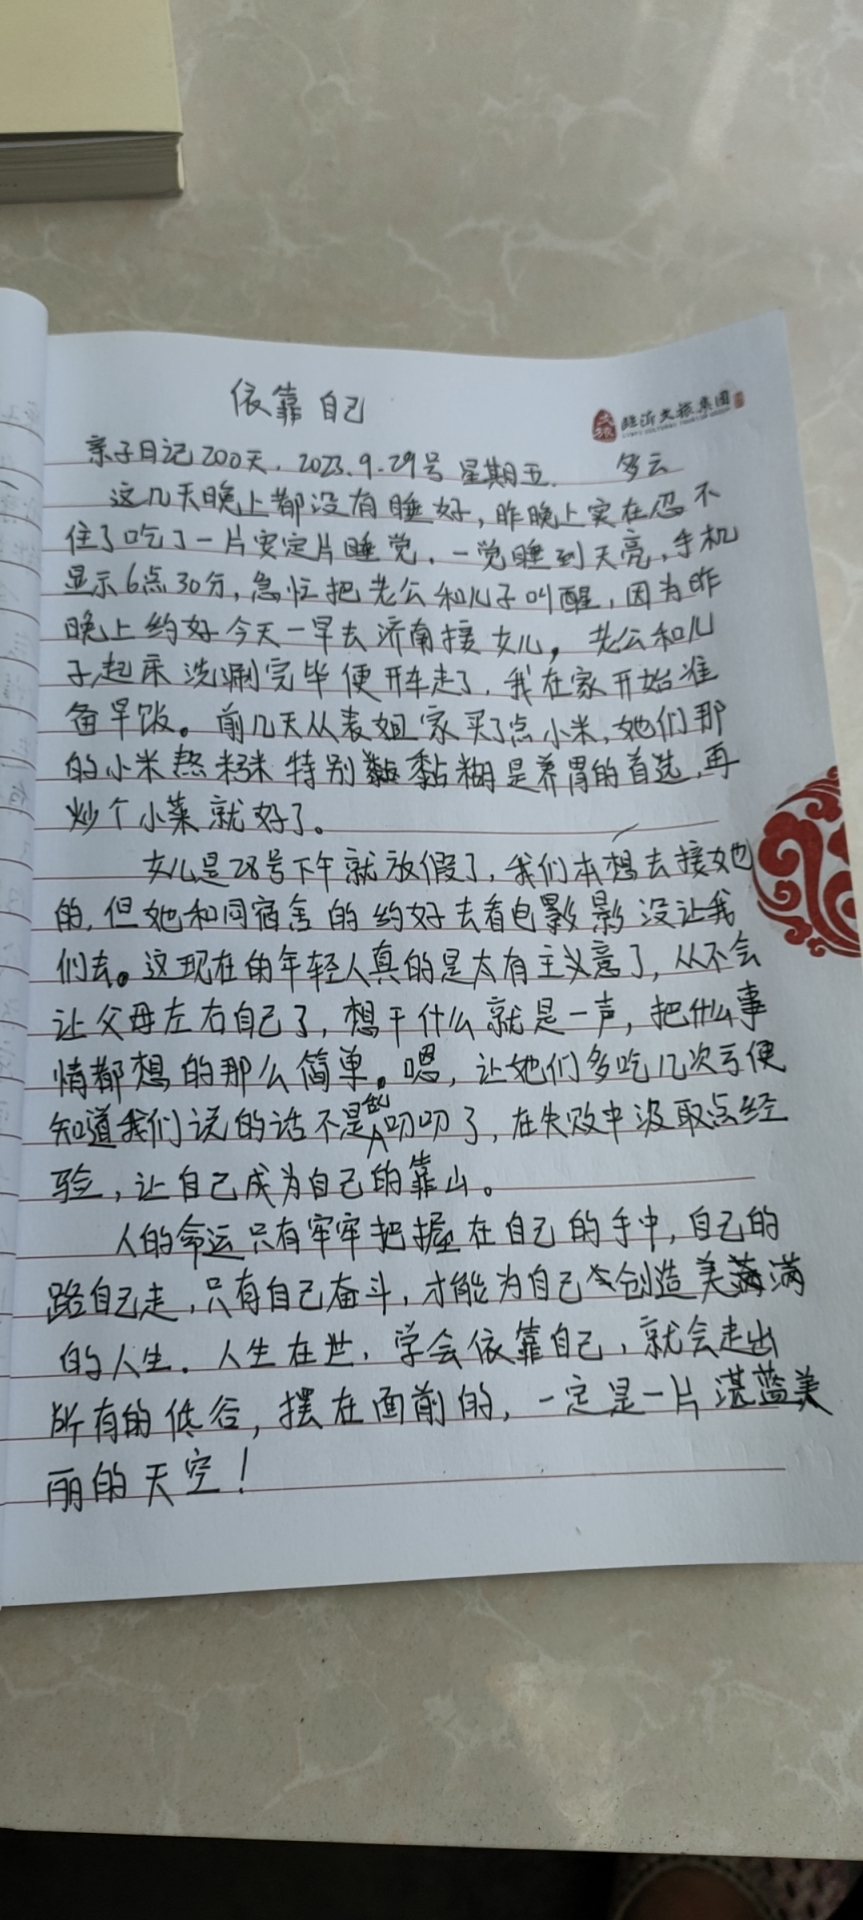 依靠自己
临沂文旅集团
亲子日记200天. 2023.9.29号 星期五. 多云
这几天晚上都没有睡好，昨晚上实在忍不
住了吃了一片安定片睡觉，一觉睡到天亮，手机
显示6点30分，急忙把老公和儿子叫醒，因为昨
晚上约好今天一早去济南接女儿，老公和儿
子起床洗涮完毕便开车走了，我在家开始准
备早饭。前几天从表姐家买了点小米，她们那
的小米熬粥特别黏糊是养胃的首选，再
炒个小菜就好了。
女儿是28号下午就放假了，我们本想去接她
的，但她和同宿舍的约好去看电影没让我
们去。这现在的年轻人真的是太有主义意了，从不会
让父母左右自己了，想干什么就是一声，把什么事
情都想的那么简单。嗯，让她们多吃几次亏便
知道我们说的话不是乱叨叨了，在失败中汲取点经
验，让自己成为自己的靠山。
人的命运只有牢牢把握在自己的手中，自己的
路自己走，只有自己奋斗，才能为自己创造美满
的人生. 人生在世，学会依靠自己，就会走出
所有的低谷，摆在面前的，一定是一片湛蓝美
丽的天空！